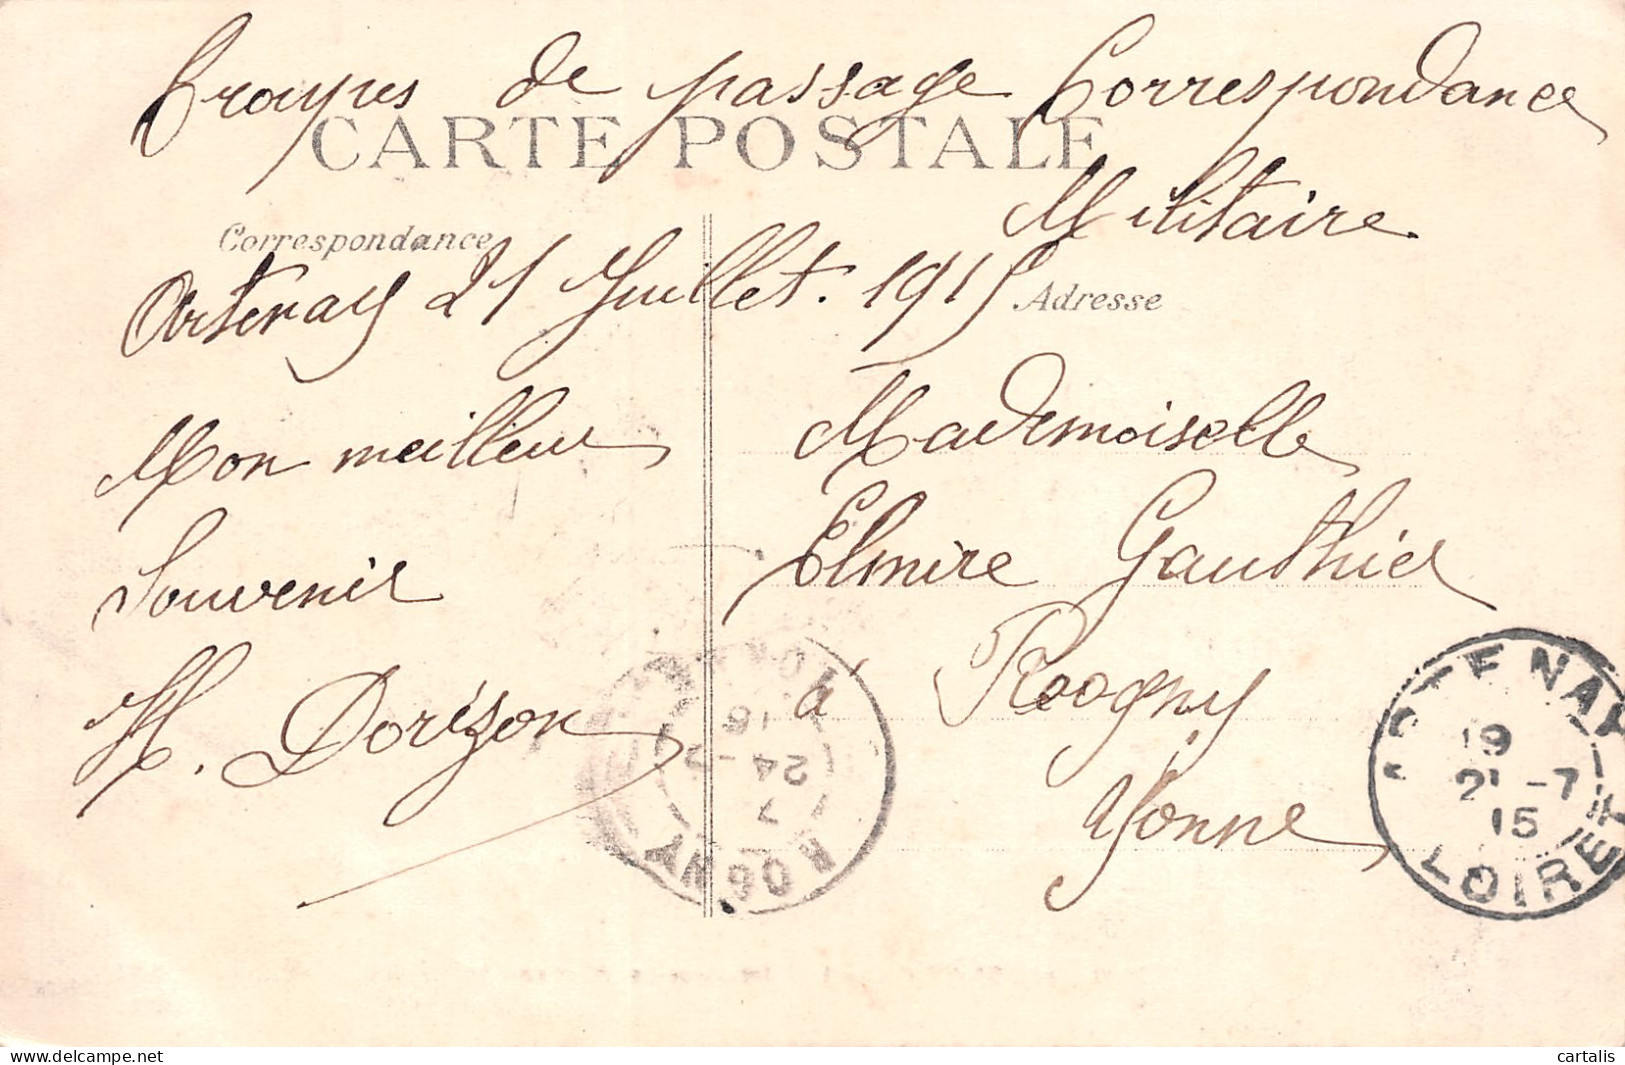 Troupes de passage Correspondance
CARTE POSTALE
Militaire
Correspondance
Artenay 21 Juillet. 1915
Adresse
Mon meilleur
Souvenir
H. Dorizon
Mademoiselle
Elmire Gauthier
à Roogny
Yonne
ARTENAY
19
21 - 7
15
LOIRET
ROGNY
YONNE
16
24 - 7
cartalis